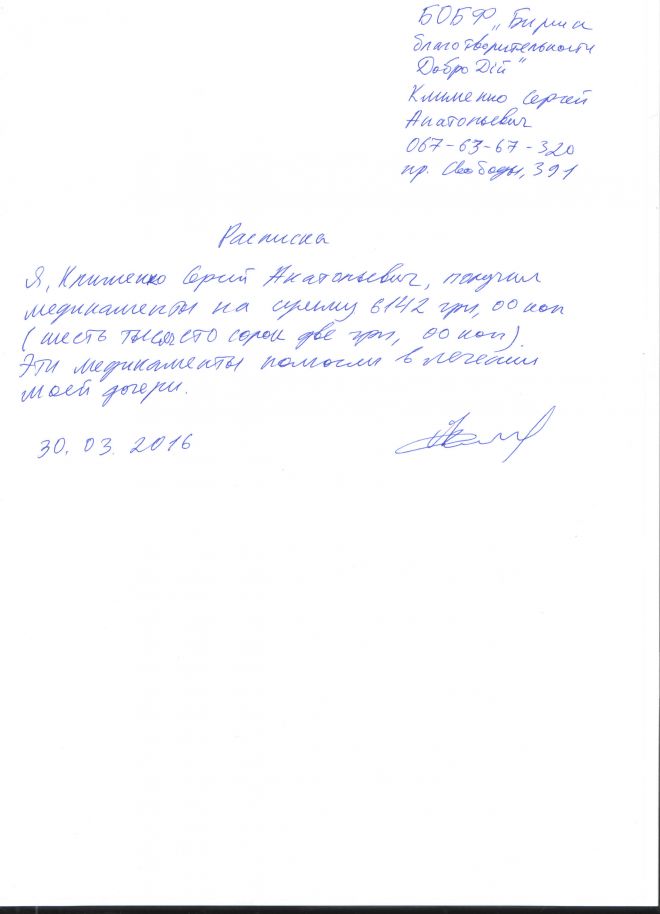 БОБФ „Биржа
благотворительности
ДоброДій"
Клименко Сергей
Анатольевич
067-63-67-320
пр. Свободы, 391
Расписка
Я, Клименко Сергей Анатольевич, получил
медикаменты на сумму 6142 грн, 00 коп
(шесть тысяч сто сорок две грн, 00 коп).
Эти медикаменты помогли в лечении
моей дочери.
30.03.2016